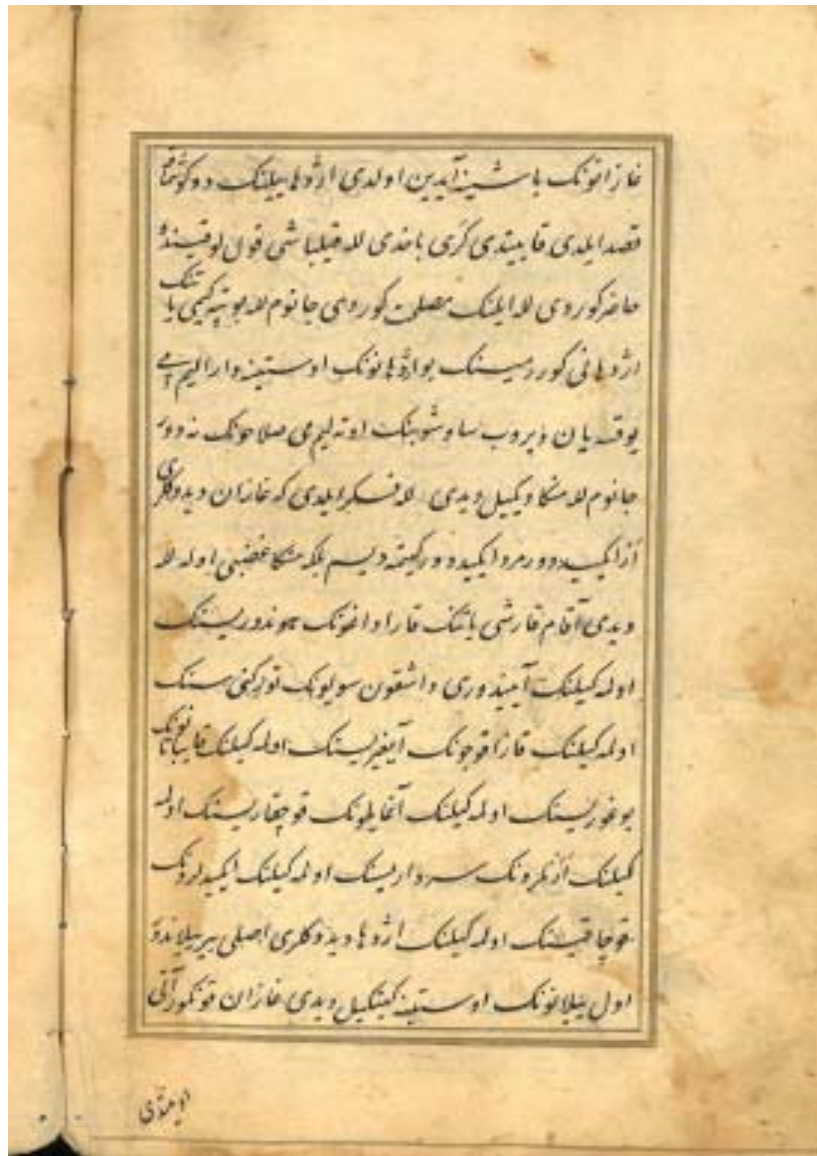 غازانونک باشینه آیدین اولدی اژدها بیلنک دوکوشماقه
قصد ایلدی قاییتدی کری باخدی لله قیلباشی قول لوقینده
حاضر کوردی لله ایلنک مصلحت کوردی جانوم لله بو پته کیمی یاتنک
اژدهانی کوررمیسنک بو اژدهانونک اوستینه وارالیم می
یوقسه یان ویروب ساوشوبنک اوته لیم می صلاحونک نه دور
جانوم لله منکا دیکیل ویدی لله فکر ایلدی که غازان دیدوکلری
ار ایکید دور مرد ایکید دور کیتمه دیسم بلکه منکا غضبی اوله لله
ویدی آقام قارشی یاتنک قارا داغونک
اوله کیلنک آمیندوری داشقون سویونک تورکنی سنک
اوله کیلنک قارا قوچونک آیغیریسنک اوله کیلنک قایتابانونک
بوغوریسنک اوله کیلنک آغایلونک قوچقاریسنک اوله
کیلنک ارنلرونک سرداریسنک اوله کیلنک ایکیدلرونک
قوچاقیسنک اوله کیلنک اژدها دیدوکلری اصلی بیر ییلاندور
اول ییلانونک اوستینه کیتکیل ویدی غازان قونکور آتی